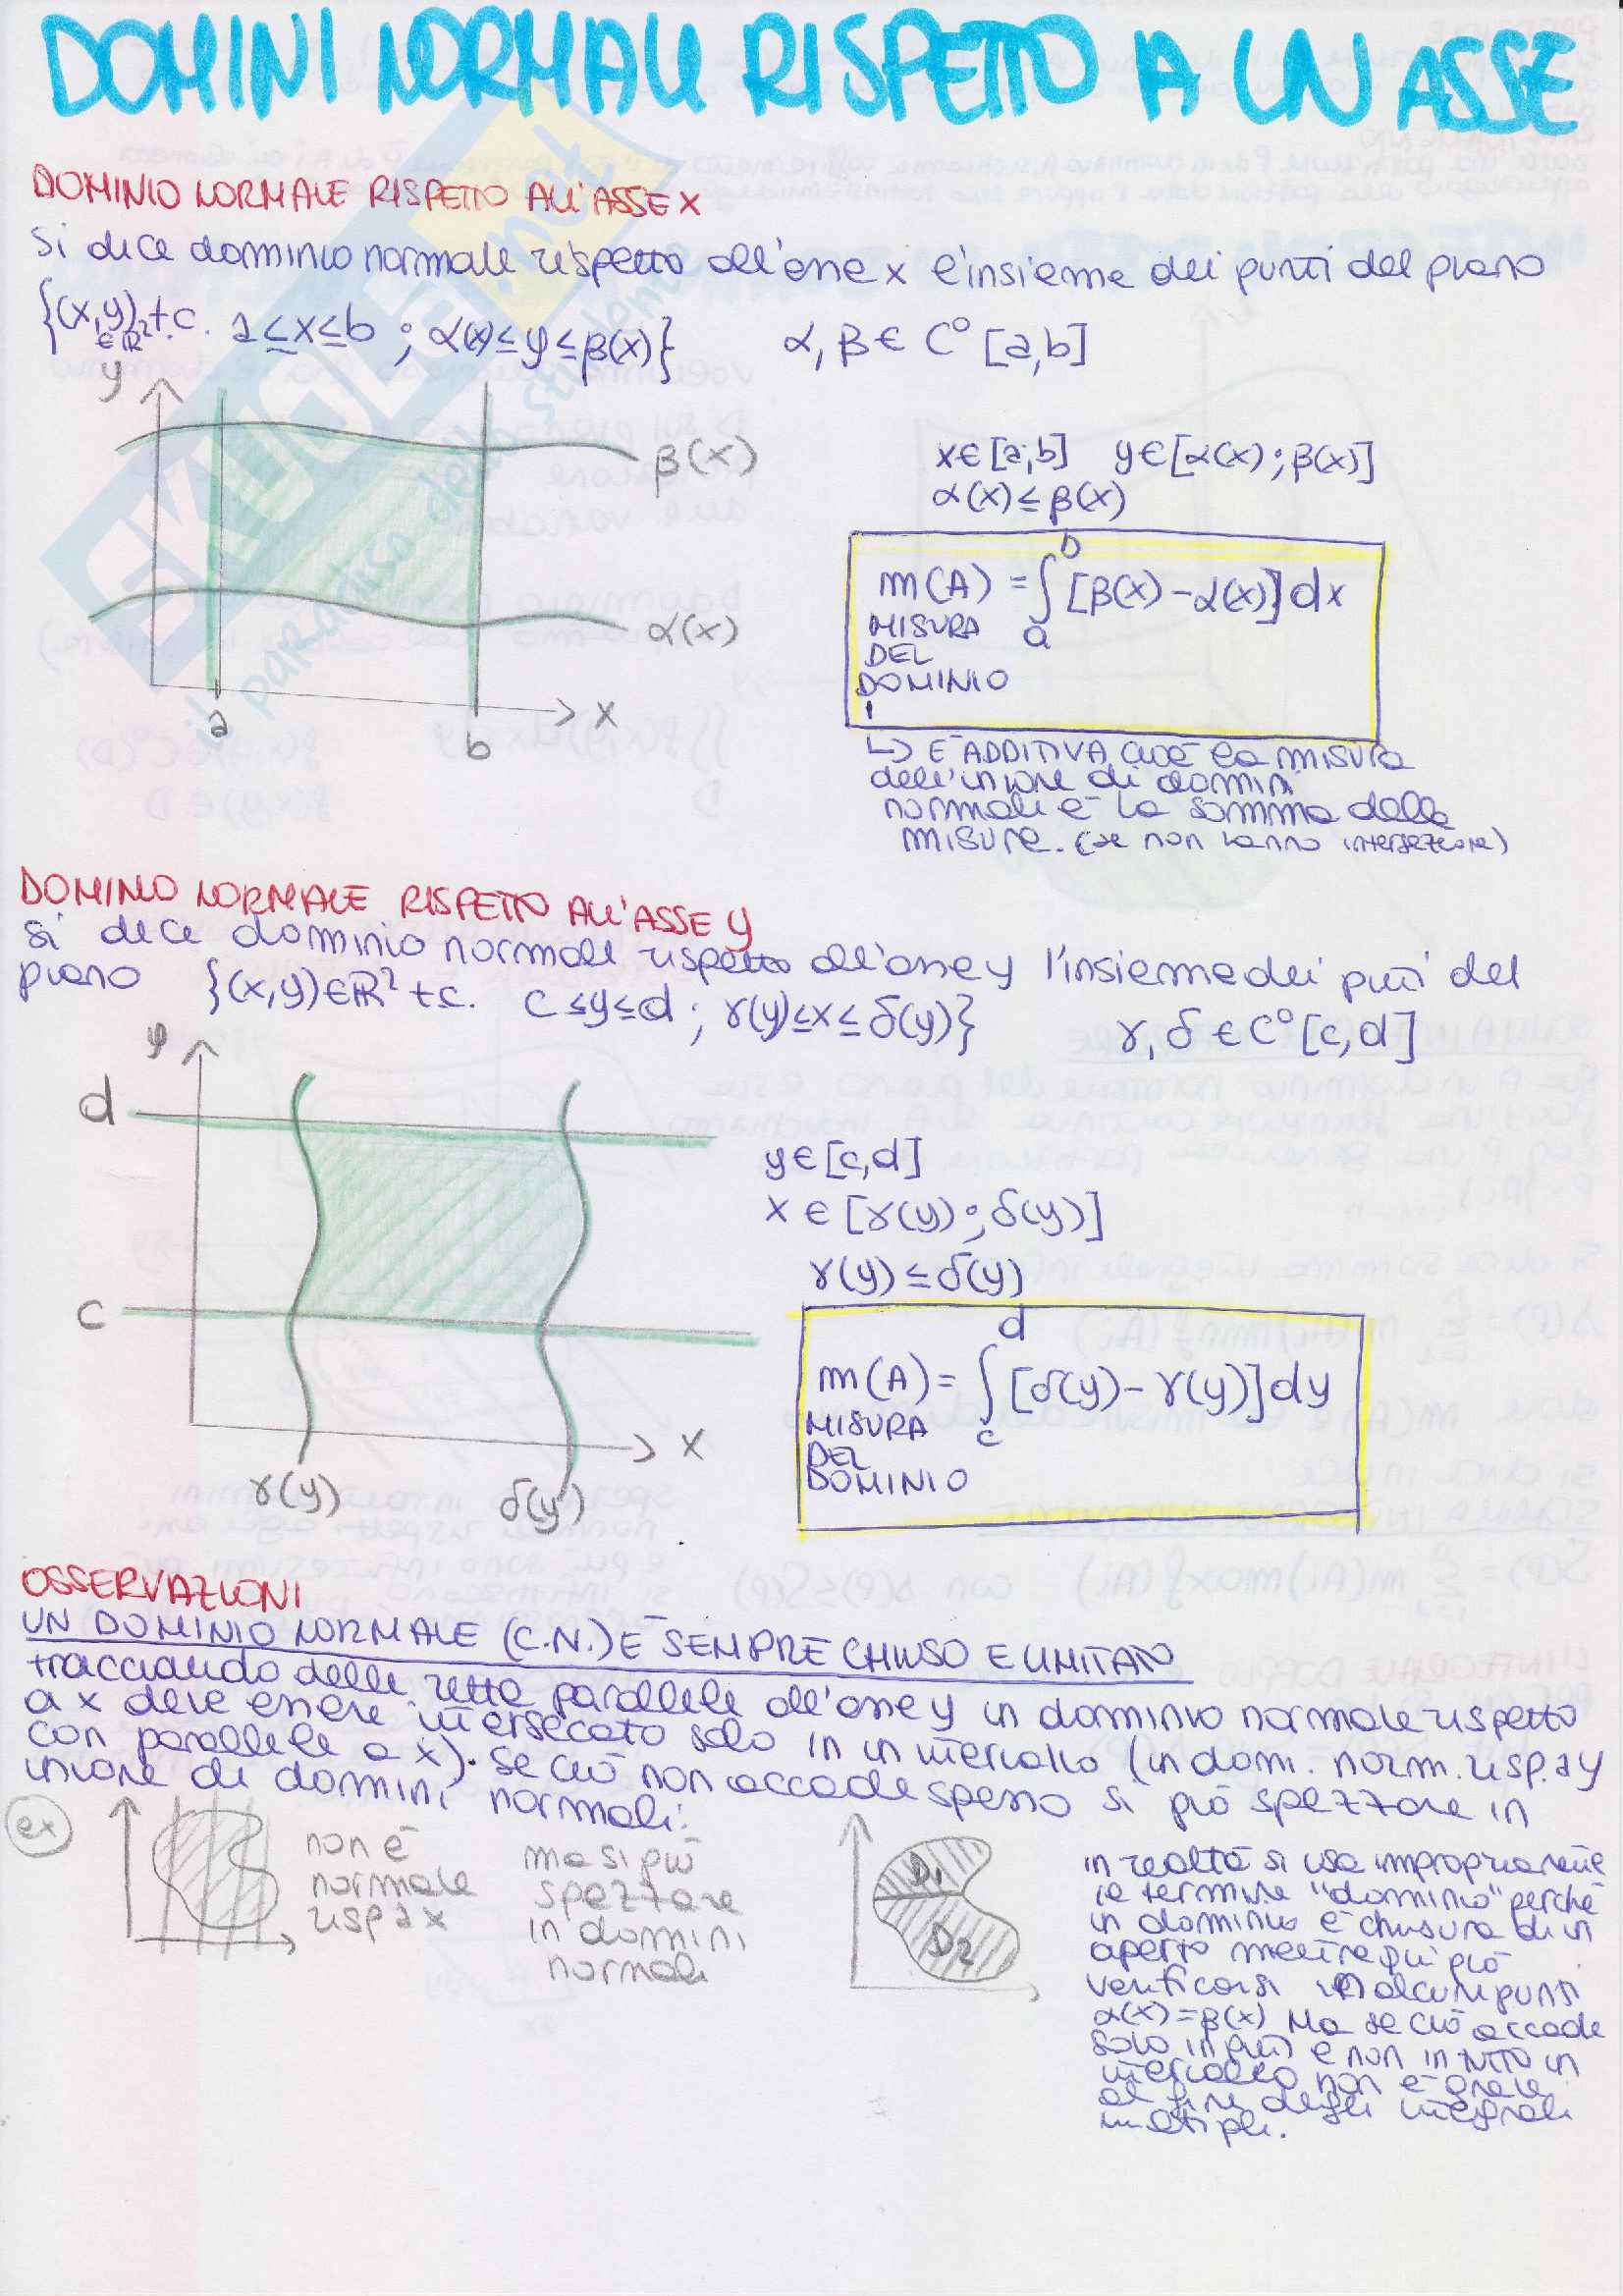 DOMINI NORMALI RISPETTO A UN ASSE
DOMINIO NORMALE RISPETTO ALL'ASSE X
si dice dominio normale rispetto all'asse x l'insieme dei punti del piano
{(x,y) ∈ℝ² t.c. a≤x≤b ; α(x)≤y≤β(x)} α, β ∈ C⁰ [a,b]
y
β(x)
x∈[a;b] y∈[α(x);β(x)]
α(x)≤β(x)
m(A) = ∫ₐᵇ [β(x)-α(x)]dx
MISURA
DEL
DOMINIO
α(x)
x
a
b
↳ È ADDITIVA cioè la misura
dell'unione di domini
normali è la somma delle
misure. (se non hanno intersezione)
DOMINIO NORMALE RISPETTO ALL'ASSE y
si dice dominio normale rispetto all'asse y l'insieme dei punti del
piano {(x,y)∈ℝ² t.c. c≤y≤d ; γ(y)≤x≤δ(y)} γ, δ ∈ C⁰ [c,d]
y
d
y∈[c,d]
x∈[γ(y);δ(y)]
γ(y)≤δ(y)
c
m(A) = ∫ᶜᵈ [δ(y)-γ(y)]dy
MISURA
DEL
DOMINIO
x
γ(y)
δ(y)
OSSERVAZIONI
UN DOMINIO NORMALE (C.N.) È SEMPRE CHIUSO E LIMITATO
tracciando delle rette parallele all'asse y un dominio normale rispetto
a x deve essere intersecato solo in un intervallo (un domi. norm. risp. a y
con parallele a x). Se ciò non accade spesso si può spezzare in
unione di domini normali:
ex
non è
normale
risp a x
ma si può
spezzare
in domini
normali
D1
D2
in realtà si usa impropriamente
il termine "dominio" perché
un dominio è chiusura di un
aperto mentre qui può
verificarsi in alcuni punti
α(x)=β(x) Ma se ciò accade
solo in punti e non in tutto un
intervallo non è grave
al fine degli integrali
multipli.
GKUILA.net
il paradiso dello studente